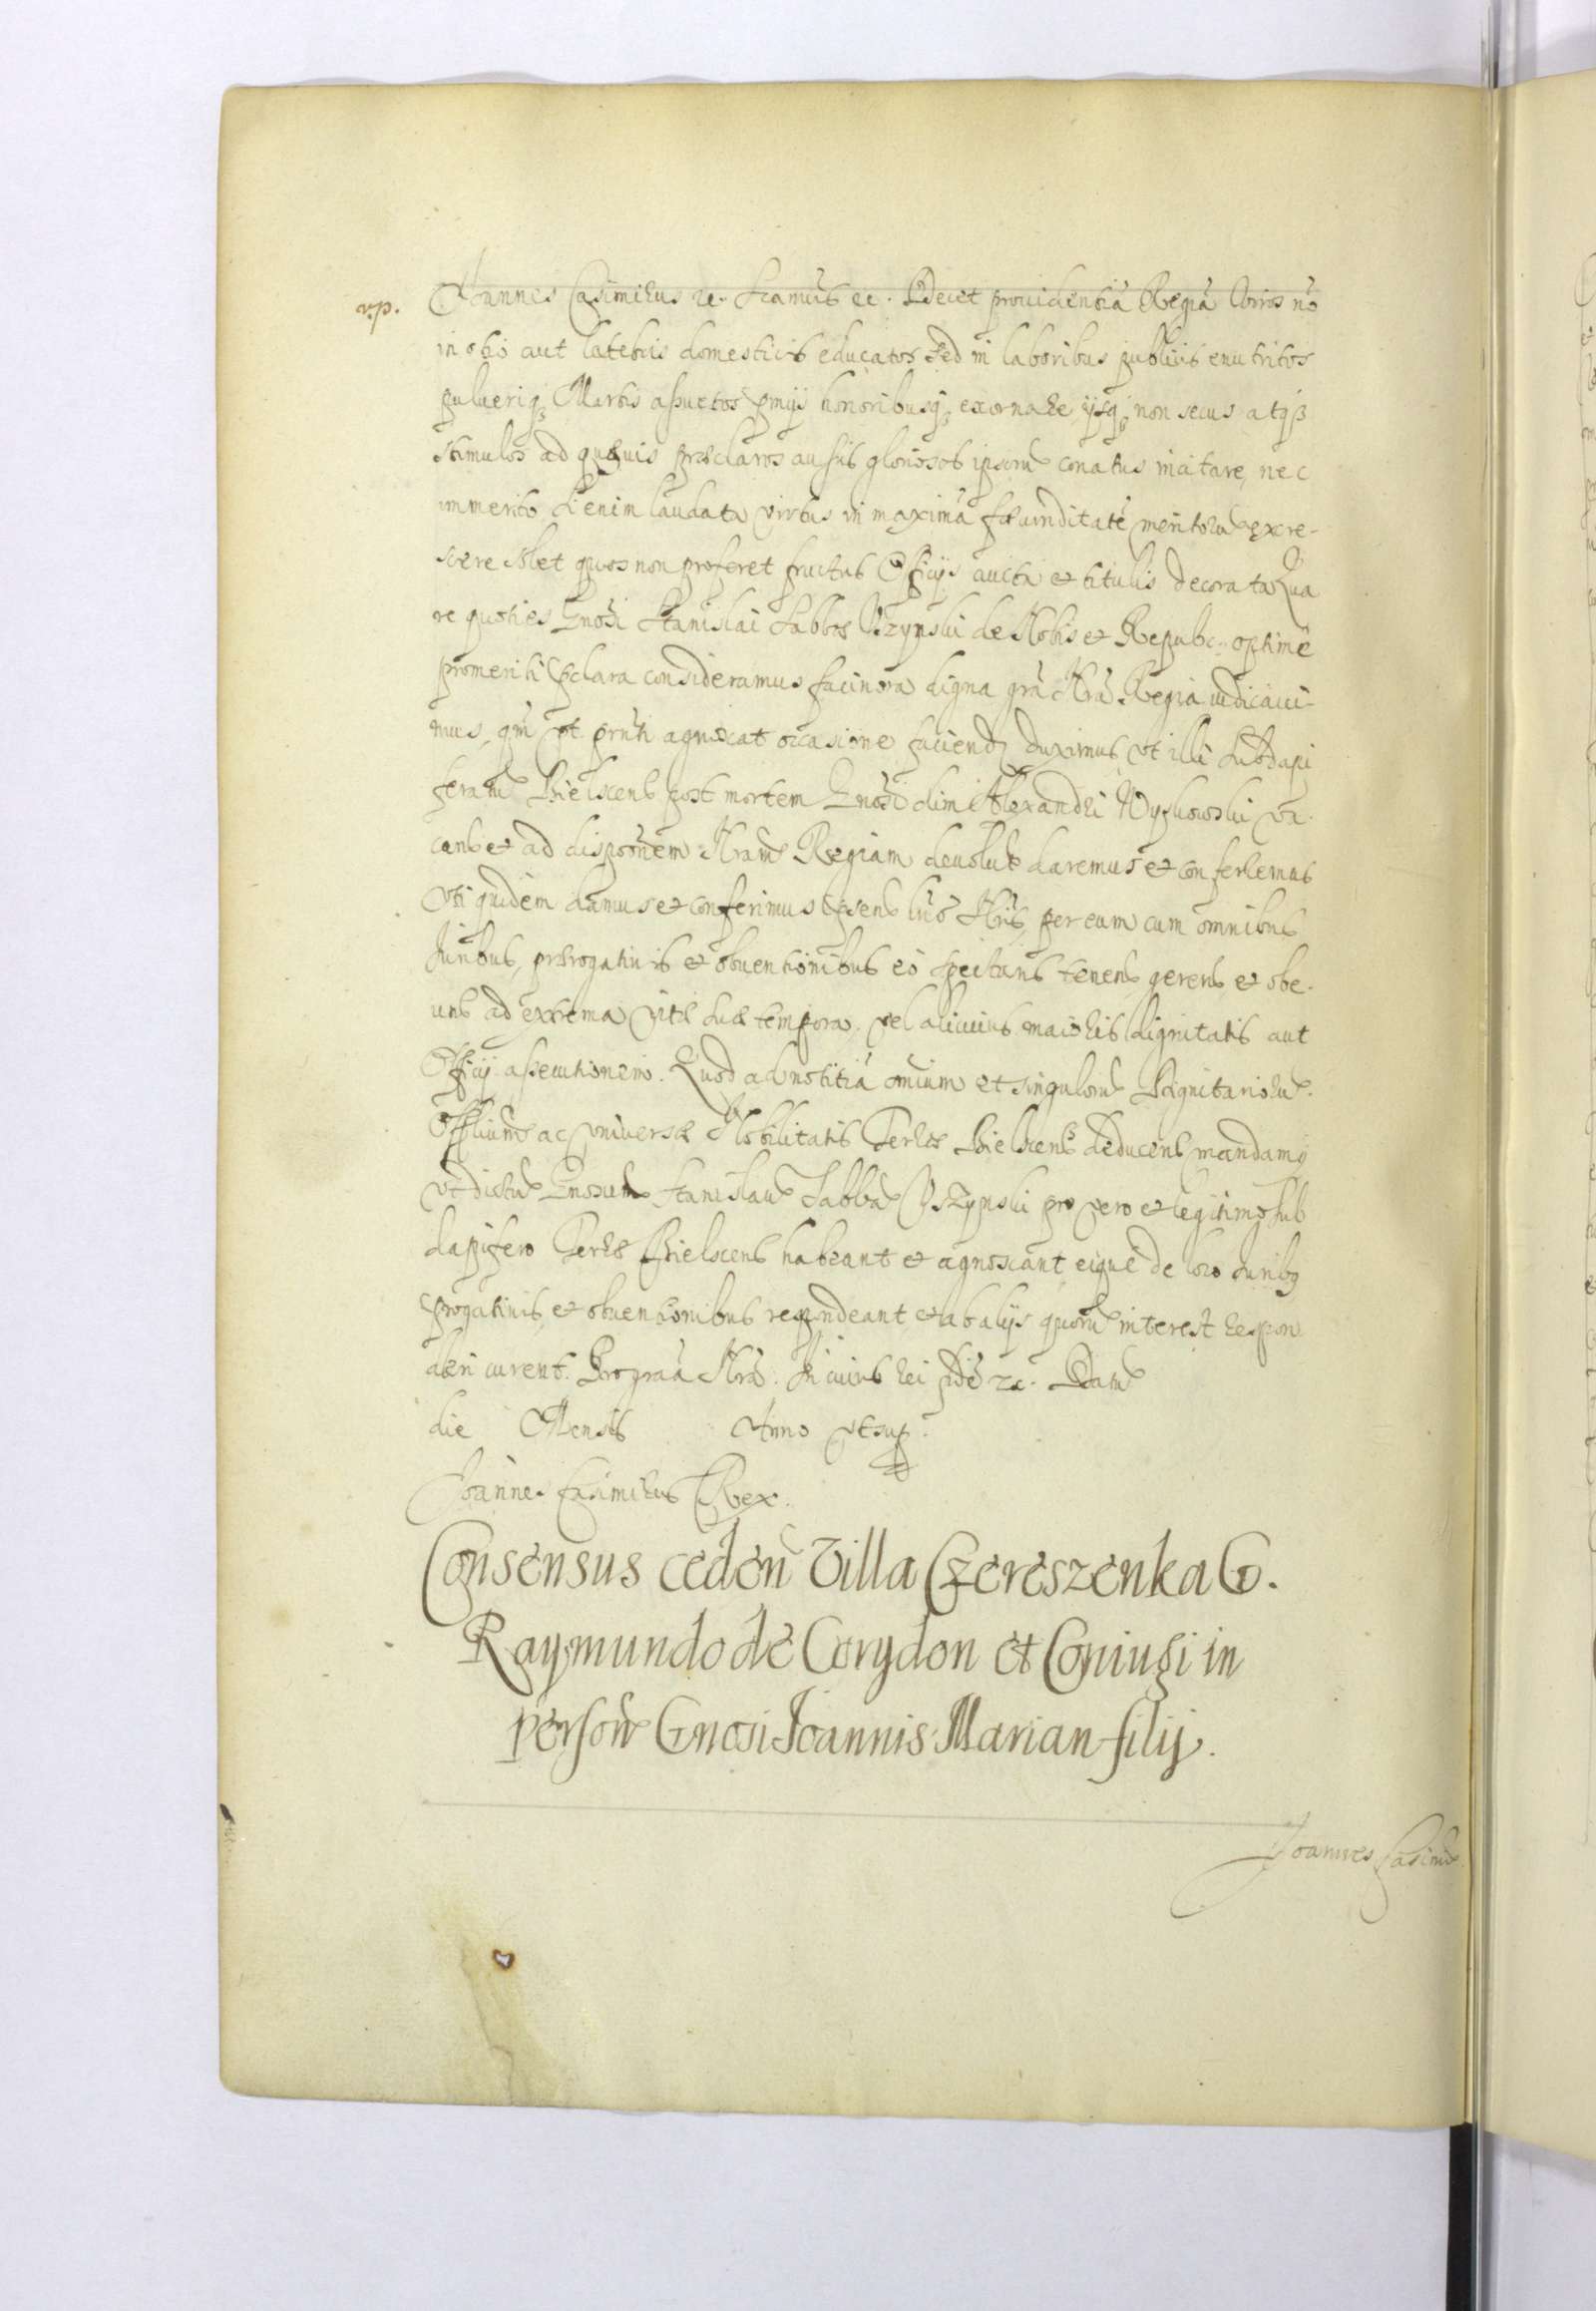 v.p.
Joannes Casimirus etc. Significamus etc. Decet prouidentiã Regiã Viros nõ
in otio aut latebris domesticis educatos sed in laboribus publicis enutritos
puluerisq; Martis assuetos pmijs honoribusq; exornare ijsq; non secus atq;
stimulos ad quæuis præclaros ausus gloriosos ipsorũ conatus incitare, nec
immerito, Sienim laudata virtus in maximã fœcunditatẽ meritorũ excre-
scere solet quos non proferet fructus Officijs aucta et titulis decorata Qua
re quoties Gnosi Stanislai Labbæ Vszynski de Nobis et Republ. optime
promeriti pclara consideramus facinora digna grã Nrã Regia iudicaui-
mus, qm̃ vt prñti agnoscat occasione faciend duximus vt illi Subdapi
feratũ Bielscens post mortem Gnosi olim Alexandri Wyszkowski va-
cans et ad dispoonem Nram Regiam deuolut daremus et conferremus
Vti quidem damus et conferimus psens lris Nris, per eum cum omnibus
Juribus, prærogatiuis et obuentionibus eo spectans tenens, gerens, et obe-
uns ad extrema vitæ suæ tempora, vel alicuius maioris dignitatis aut
Officij assecutionem. Quod ad notitiã omium et singulorũ Dignitariorũ
Offlium ac vniuersæ Nobilitatis Terræ Bielscens deducens mandamq
vt dictũ Gnosum Stanislaũ Labbã Vszynski pro vero et legitimo sub
dapifero Terræ Bielscens habeant et agnoscant eique de loco Juribq
progatiuis, et obuentionibus respondeant et ab alijs quorũ interest respon
deri curent. Pro graa Nra. In cuius rei fidẽ etc. Datũ
die Mensis Anno vt sup.
Joannes Casimirus Rex.
Consensus cedeñ Villa Czereszenka G.
Raymundo de Corydon et Coniugi in
persoñ Gnosi Joannis Marian filij.
Joannes Casimi